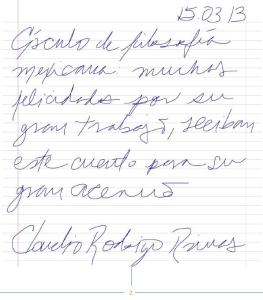 15.03 13
Círculo de filosofía
mexicana: muchas
felicidades por su
gran trabajo, reciban
este cuento para su
gran acervo
Claudio Rodrigo Rivas
2